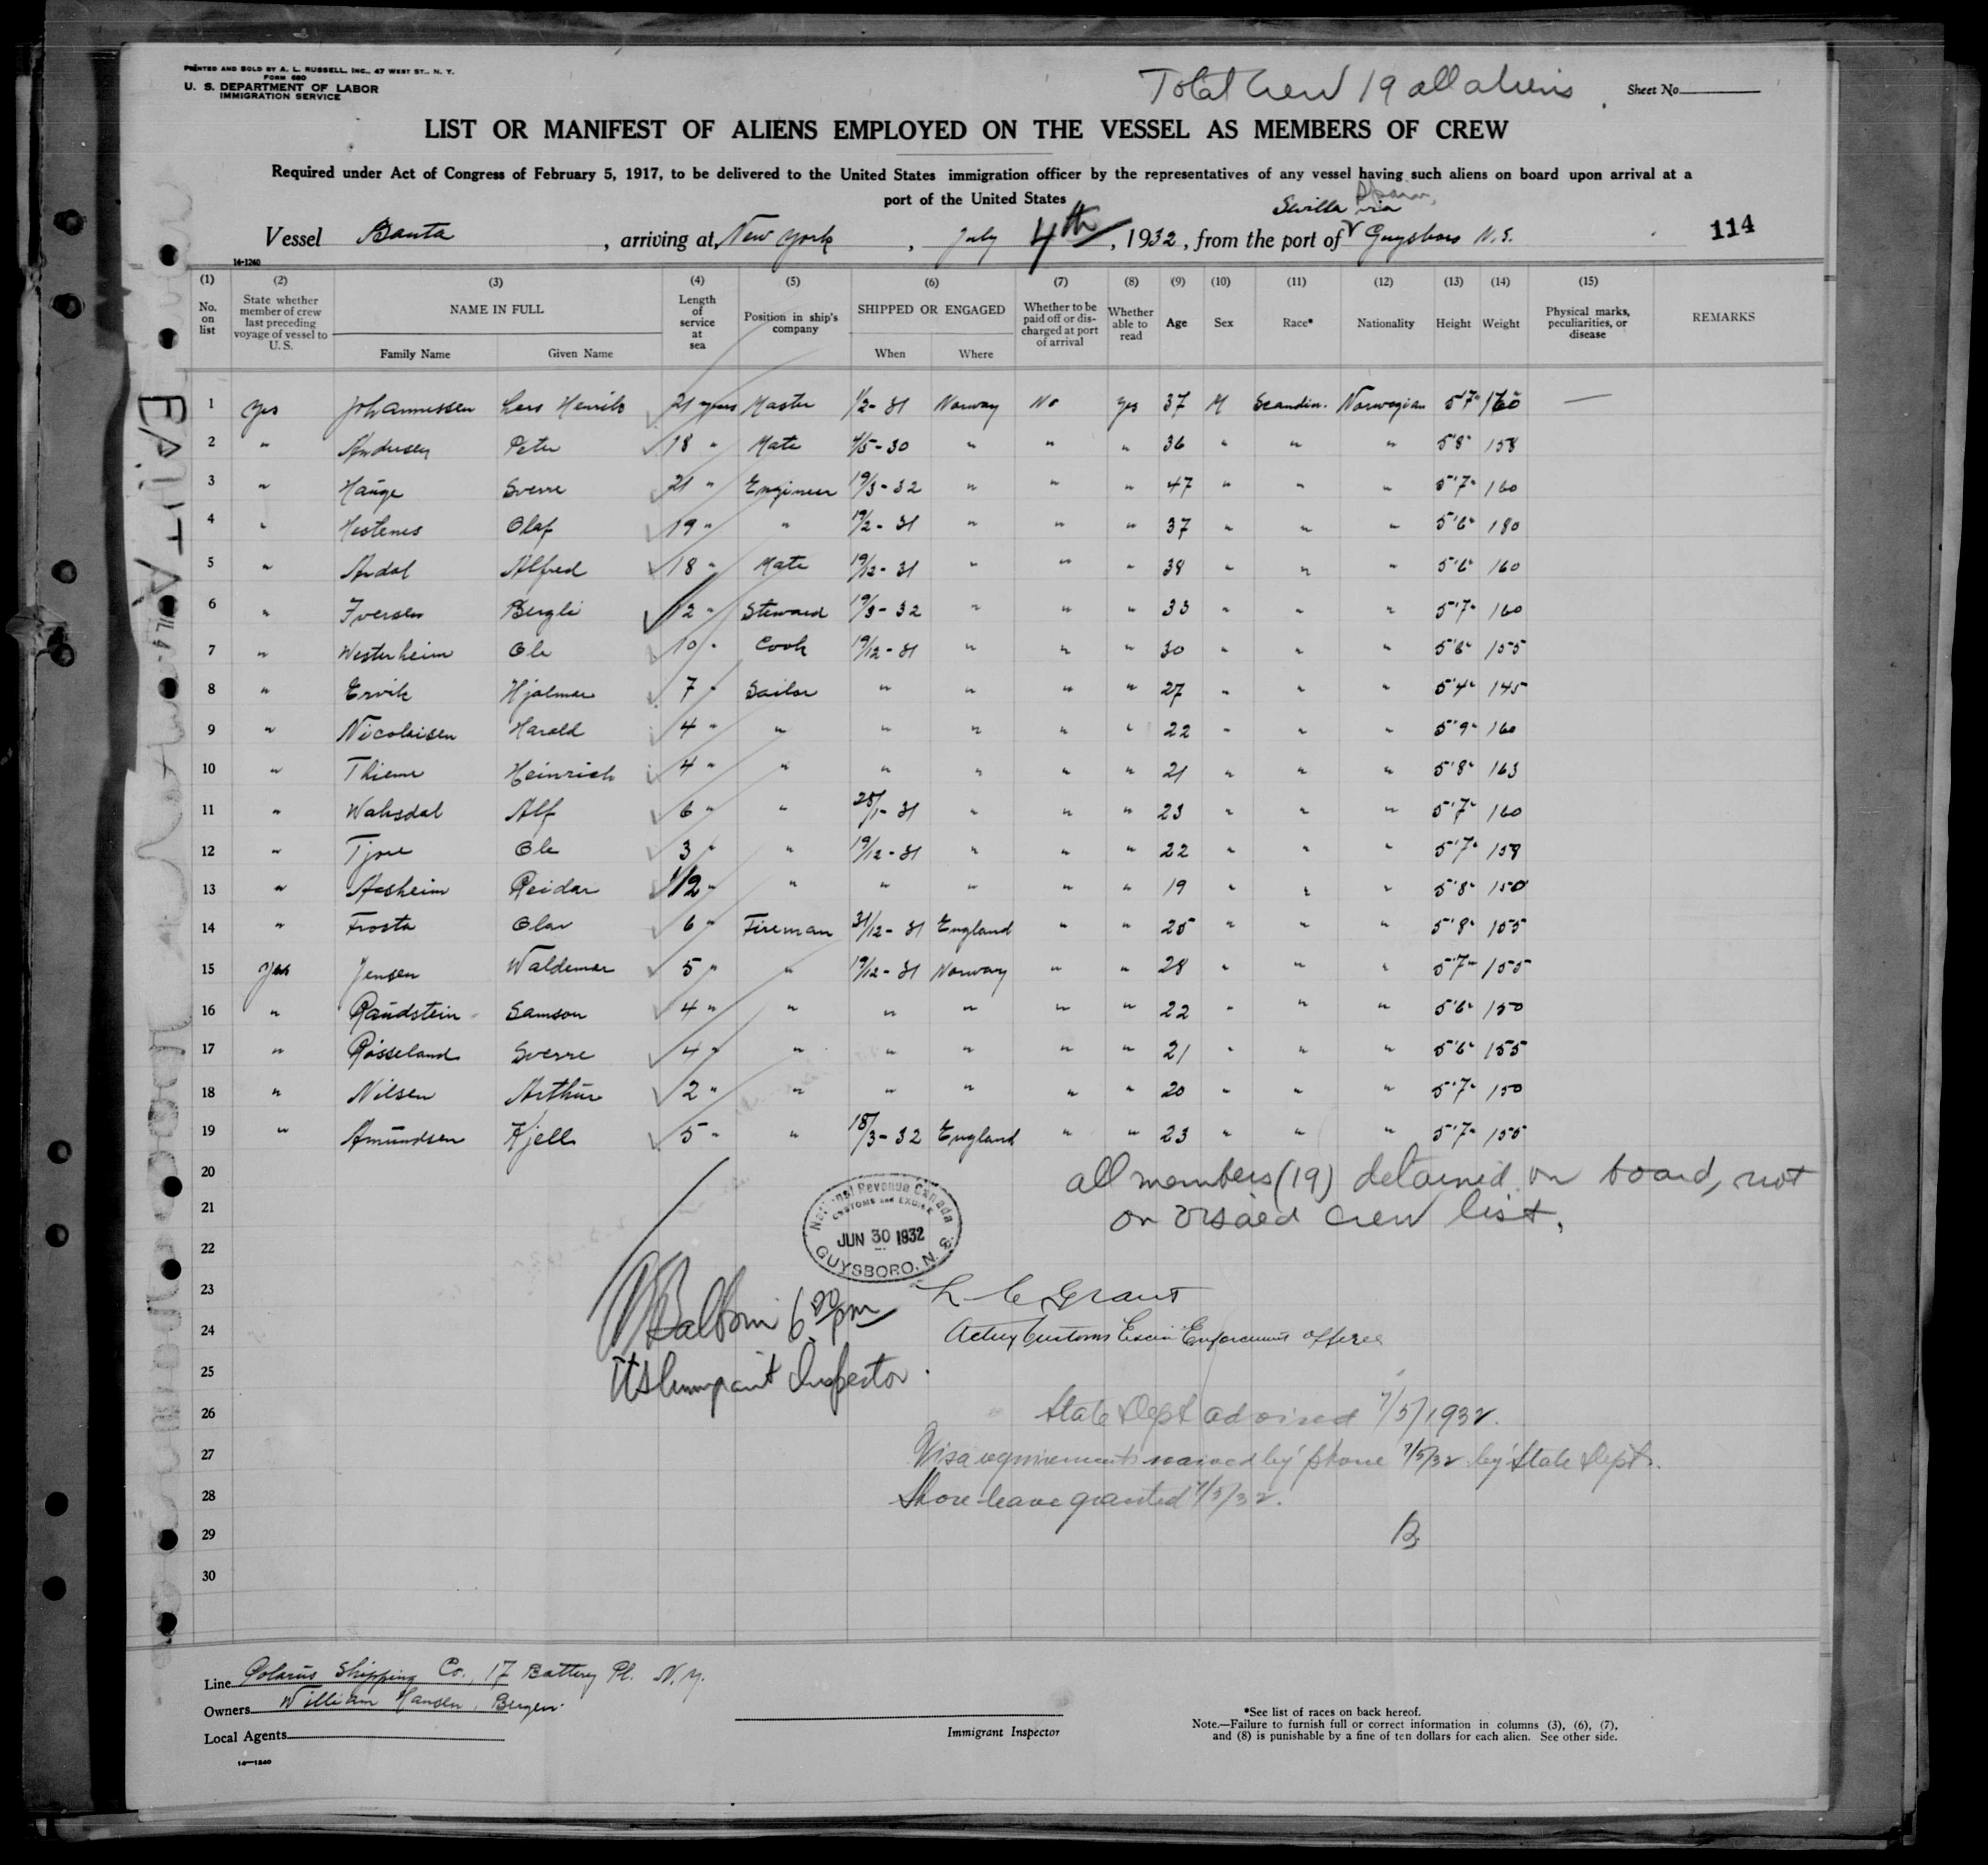 PRINTED AND SOLD BY A. L. RUSSELL, INC., 47 WEST ST., N. Y.
FORM 680
U. S. DEPARTMENT OF LABOR
IMMIGRATION SERVICE
Total Crew 19 all aliens.
Sheet No.
LIST OR MANIFEST OF ALIENS EMPLOYED ON THE VESSEL AS MEMBERS OF CREW
Required under Act of Congress of February 5, 1917, to be delivered to the United States immigration officer by the representatives of any vessel having such aliens on board upon arrival at a
port of the United States
Sevilla Spain, via
Vessel Bauta, arriving at New York, July 4th, 1932, from the port of Guysboro N.S.
114
14-1240
(1) (2) (3) (4) (5) (6) (7) (8) (9) (10) (11) (12) (13) (14) (15)
No. on list | State whether member of crew last preceding voyage of vessel to U. S. | NAME IN FULL | Family Name | Given Name | Length of service at sea | Position in ship's company | SHIPPED OR ENGAGED | When | Where | Whether to be paid off or discharged at port of arrival | Whether able to read | Age | Sex | Race* | Nationality | Height | Weight | Physical marks, peculiarities, or disease | REMARKS
1 Yes Johannessen Lars Henrik 21 years Master 1/2-31 Norway No Yes 37 M Scandin. Norwegian 5'7" 160 —
2 " Andersen Peter 18 " Mate 4/5-30 " " " 36 " " " 5'8" 158
3 " Hauge Sverre 21 " Engineer 19/3-32 " " " 47 " " " 5'7" 160
4 " Hestenes Olaf 19 " " 19/2-31 " " " 37 " " " 5'6" 180
5 " Ardal Alfred 18 " Mate 19/12-31 " " " 38 " " " 5'6" 160
6 " Iversen Bergli 12 " Steward 19/3-32 " " " 33 " " " 5'7" 160
7 " Westerheim Ole 10 " Cook 19/12-31 " " " 30 " " " 5'6" 155
8 " Ervik Hjalmar 7 " Sailor " " " " 27 " " " 5'4" 145
9 " Nicolaisen Harald 4 " " " " " " 22 " " " 5'9" 160
10 " Thieme Heinrich 4 " " " " " " 21 " " " 5'8" 163
11 " Alf 6 " " 25/1-31 " " " 23 " " " 5'7" 160
12 " Ole 3 " " 19/12-31 " " " 22 " " " 5'7" 158
13 " Aasheim Reidar 1/2 " " " " " " 19 " " " 5'8" 150
14 " Frosta Olav 6 " Fireman 31/12-31 England " " 25 " " " 5'8" 155
15 Yes Jensen Waldemar 5 " " 19/12-31 Norway " " 28 " " " 5'7" 155
16 " Raudstein Samson 4 " " " " " " 22 " " " 5'6" 150
17 " Rosseland Sverre 4 " " " " " " 21 " " " 5'6" 155
18 " Nilsen Arthur 2 " " " " " " 20 " " " 5'7" 150
19 " Amundsen Kjell 5 " " 18/3-32 England " " 23 " " " 5'7" 155
20
21
22
23
24
25
26
27
28
29
30
all members (19) detained on board, not
on visaed crew list.
National Revenue Canada
CUSTOMS and EXCISE
JUN 30 1932
GUYSBORO, N. S.
6 00 pm
US Immigrant Inspector.
Grant
Acting Customs Excise Enforcement officer
State Dept advised 7/5/1932.
Visa requirements waived by phone 7/5/32 by State Dept.
Shore leave granted 7/5/32.
B
BAUTA
Line Polarus Shipping Co., 17 Battery Pl. N.Y.
Owners William Hansen, Bergen.
Local Agents
14—1240
Immigrant Inspector
*See list of races on back hereof.
Note.—Failure to furnish full or correct information in columns (3), (6), (7),
and (8) is punishable by a fine of ten dollars for each alien. See other side.